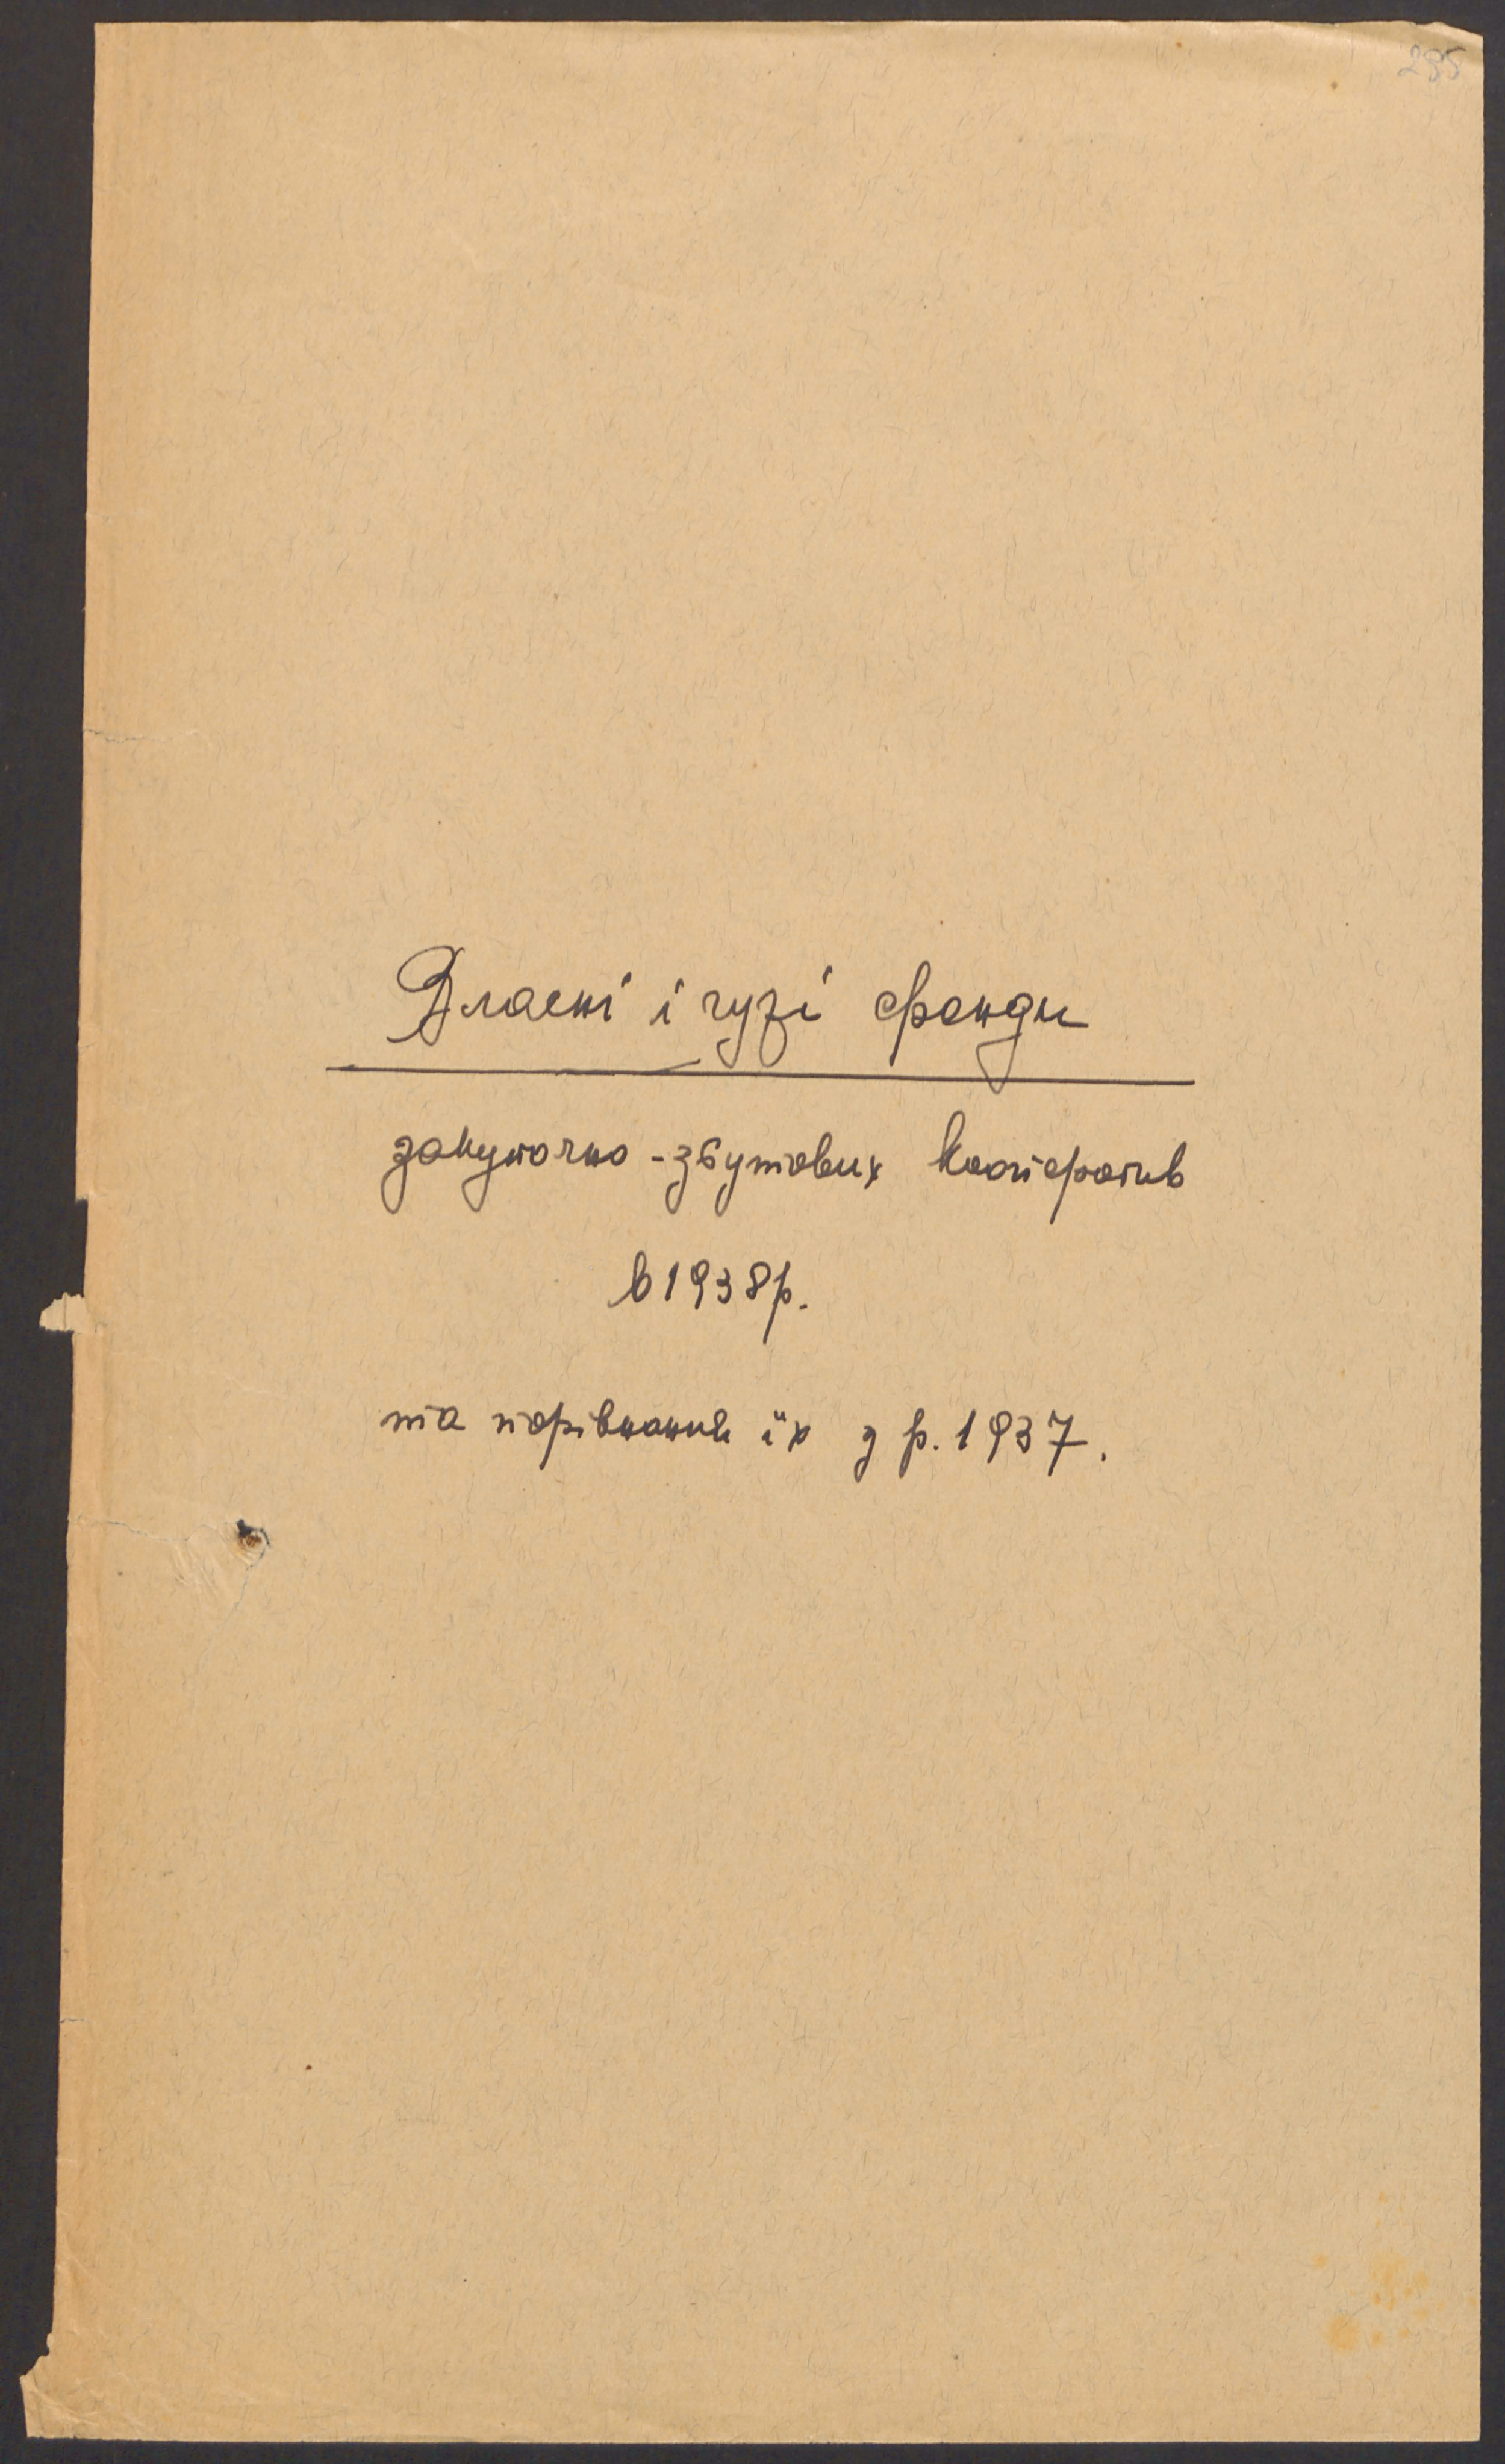 295
Власні і чужі фонди
закупочно-збутових кооператив
в 1938 р.
та порівнання їх з р. 1937.